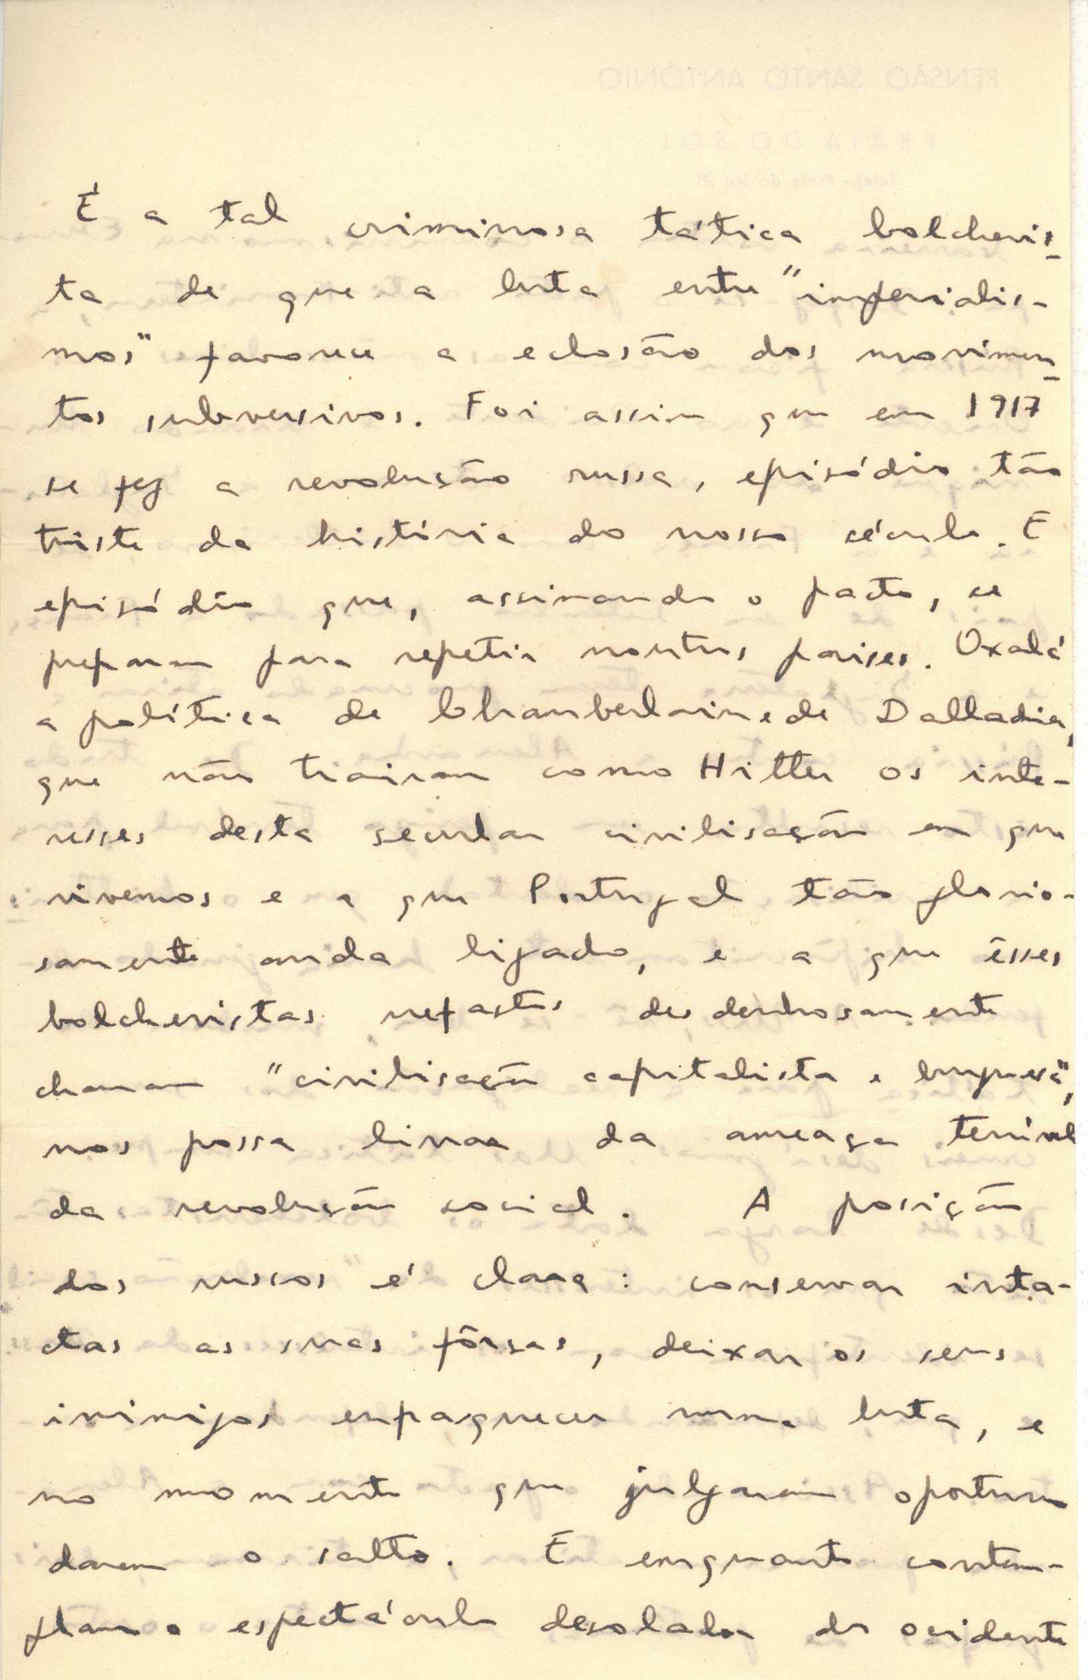 É a tal criminosa tática bolchevis-
ta de que a luta entre "imperialis-
mos" favorece a eclosão dos movimen-
tos subversivos. Foi assim que em 1917
se fez a revolução russa, episódio tão
triste da história do nosso século. E
episódio que, assinando o pacto, se
preparam para repetir noutros países. Oxalá
a política de Chamberlain e de Dalladier,
que não trairam como Hitler os inte-
resses desta secular civilisação em que
vivemos e a que Portugal tão glorio-
samente anda ligado, e a que êsses
bolchevistas nefastos desdenhosamente
chamam "civilisação capitalista e burguesa",
nos possa livrar da ameaça terrível
da revolução social. A posição
dos russos é clara: conservar inta-
ctas as suas fôrças, deixar os seus
inimigos enfraquecer numa luta, e
no momento que julgarem oportuno
darem o salto. E enquanto contem-
plam o espectáculo desolador do ocidente
PENSÃO SANTO ANTÓNIO